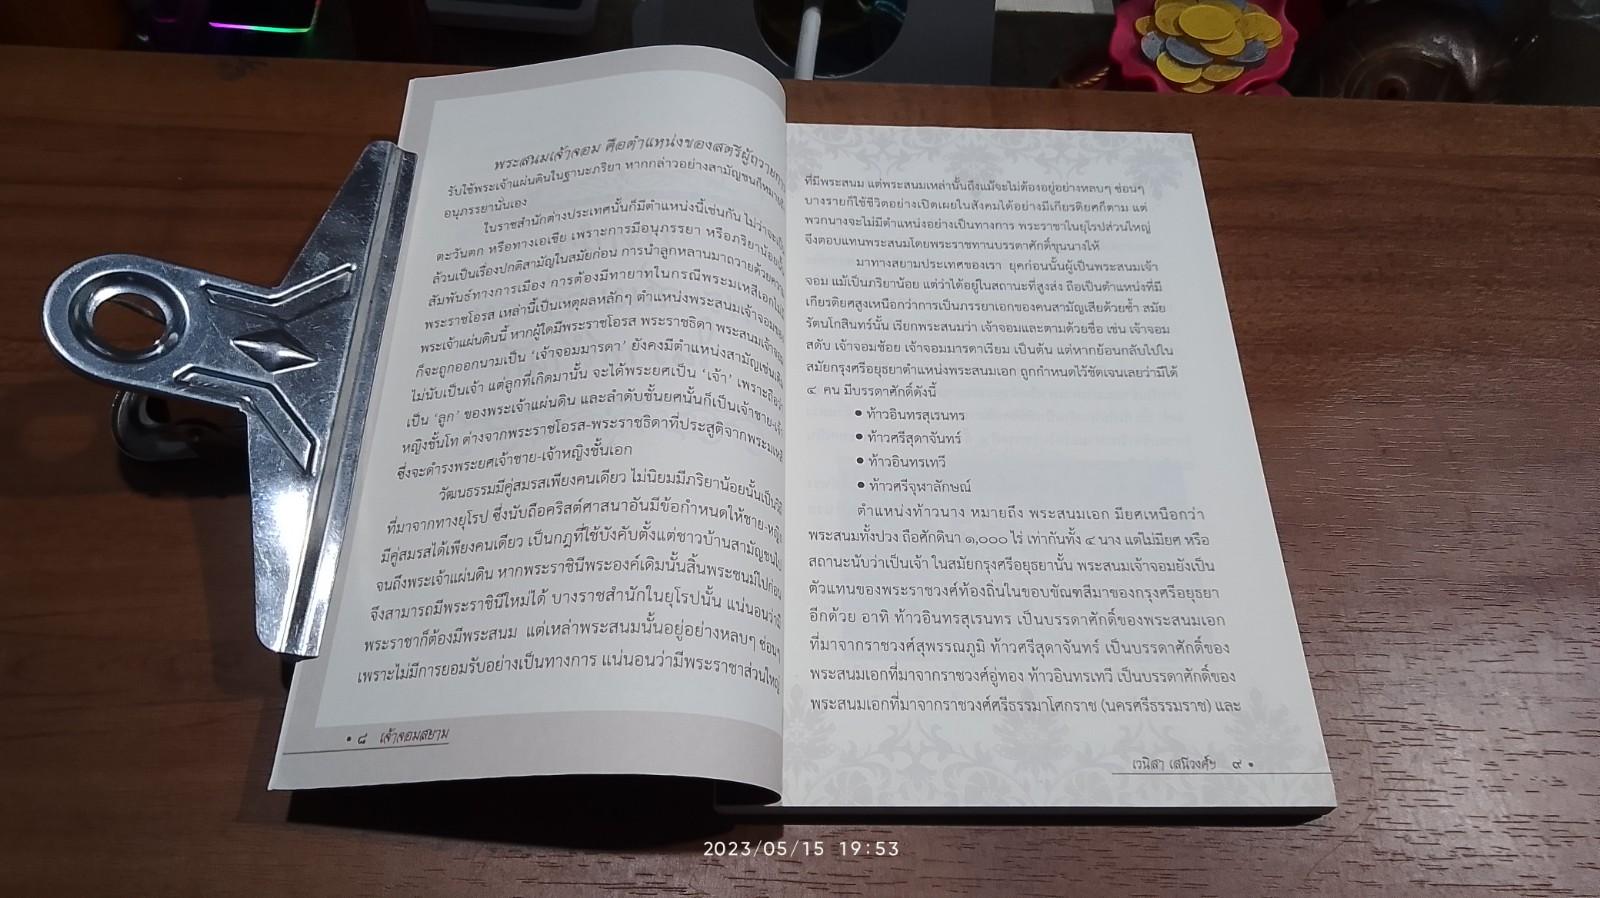 พระสนมเจ้าจอม คือตำแหน่งของสตรีผู้ถวายการ
รับใช้พระเจ้าแผ่นดินในฐานะภริยา หากกล่าวอย่างสามัญชนก็หมายถึง
อนุภรรยานั่นเอง
ในราชสำนักต่างประเทศนั้นก็มีตำแหน่งนี้เช่นกัน ไม่ว่าจะเป็น
ตะวันตก หรือทางเอเชีย เพราะการมีอนุภรรยา หรือภริยาน้อยนั้น
ล้วนเป็นเรื่องปกติสามัญในสมัยก่อน การนำลูกหลานมาถวายด้วยความ
สัมพันธ์ทางการเมือง การต้องมีทายาทในกรณีพระมเหสีเอกไม่มี
พระราชโอรส เหล่านี้เป็นเหตุผลหลักๆ ตำแหน่งพระสนมเจ้าจอมของ
พระเจ้าแผ่นดินนี้ หากผู้ใดมีพระราชโอรส พระราชธิดา พระสนมเจ้าจอม
ก็จะถูกออกนามเป็น ‘เจ้าจอมมารดา’ ยังคงมีตำแหน่งสามัญเช่นเดิม
ไม่นับเป็นเจ้า แต่ลูกที่เกิดมานั้น จะได้พระยศเป็น ‘เจ้า’ เพราะถือว่า
เป็น ‘ลูก’ ของพระเจ้าแผ่นดิน และลำดับชั้นยศนั้นก็เป็นเจ้าชาย-เจ้า
หญิงชั้นโท ต่างจากพระราชโอรส-พระราชธิดาที่ประสูติจากพระมเหสี
ซึ่งจะดำรงพระยศเจ้าชาย-เจ้าหญิงชั้นเอก
วัฒนธรรมมีคู่สมรสเพียงคนเดียว ไม่นิยมมีภริยาน้อยนั้นเป็นวิถี
ที่มาจากทางยุโรป ซึ่งนับถือคริสต์ศาสนาอันมีข้อกำหนดให้ชาย-หญิง
มีคู่สมรสได้เพียงคนเดียว เป็นกฎที่ใช้บังคับตั้งแต่ชาวบ้านสามัญชนไป
จนถึงพระเจ้าแผ่นดิน หากพระราชินีพระองค์เดิมนั้นสิ้นพระชนม์ไปก่อน
จึงสามารถมีพระราชินีใหม่ได้ บางราชสำนักในยุโรปนั้น แน่นอนว่ามี
พระราชาก็ต้องมีพระสนม แต่เหล่าพระสนมนั้นอยู่อย่างหลบๆ ซ่อนๆ
เพราะไม่มีการยอมรับอย่างเป็นทางการ แน่นอนว่ามีพระราชาส่วนใหญ่
• ๘ เจ้าจอมสยาม
ที่มีพระสนม แต่พระสนมเหล่านั้นถึงแม้จะไม่ต้องอยู่อย่างหลบๆ ซ่อนๆ
บางรายก็ใช้ชีวิตอย่างเปิดเผยในสังคมได้อย่างมีเกียรติยศก็ตาม แต่
พวกนางจะไม่มีตำแหน่งอย่างเป็นทางการ พระราชาในยุโรปส่วนใหญ่
จึงตอบแทนพระสนมโดยพระราชทานบรรดาศักดิ์ขุนนางให้
มาทางสยามประเทศของเรา ยุคก่อนนั้นผู้เป็นพระสนมเจ้า
จอม แม้เป็นภริยาน้อย แต่ว่าได้อยู่ในสถานะที่สูงส่ง ถือเป็นตำแหน่งที่มี
เกียรติยศสูงเหนือกว่าการเป็นภรรยาเอกของคนสามัญเสียด้วยซ้ำ สมัย
รัตนโกสินทร์นั้น เรียกพระสนมว่า เจ้าจอมและตามด้วยชื่อ เช่น เจ้าจอม
สดับ เจ้าจอมช้อย เจ้าจอมมารดาเรียม เป็นต้น แต่หากย้อนกลับไปใน
สมัยกรุงศรีอยุธยาตำแหน่งพระสนมเอก ถูกกำหนดไว้ชัดเจนเลยว่ามีได้
๔ คน มีบรรดาศักดิ์ดังนี้
• ท้าวอินทรสุเรนทร
• ท้าวศรีสุดาจันทร์
• ท้าวอินทรเทวี
• ท้าวศรีจุฬาลักษณ์
ตำแหน่งท้าวนาง หมายถึง พระสนมเอก มียศเหนือกว่า
พระสนมทั้งปวง ถือศักดินา ๑,๐๐๐ ไร่ เท่ากันทั้ง ๔ นาง แต่ไม่มียศ หรือ
สถานะนับว่าเป็นเจ้า ในสมัยกรุงศรีอยุธยานั้น พระสนมเจ้าจอมยังเป็น
ตัวแทนของพระราชวงศ์ท้องถิ่นในขอบขัณฑสีมาของกรุงศรีอยุธยา
อีกด้วย อาทิ ท้าวอินทรสุเรนทร เป็นบรรดาศักดิ์ของพระสนมเอก
ที่มาจากราชวงศ์สุพรรณภูมิ ท้าวศรีสุดาจันทร์ เป็นบรรดาศักดิ์ของ
พระสนมเอกที่มาจากราชวงศ์อู่ทอง ท้าวอินทรเทวี เป็นบรรดาศักดิ์ของ
พระสนมเอกที่มาจากราชวงศ์ศรีธรรมาโศกราช (นครศรีธรรมราช) และ
เวนิสา เสนีวงศ์ฯ ๙ •
2023/05/15 19:53